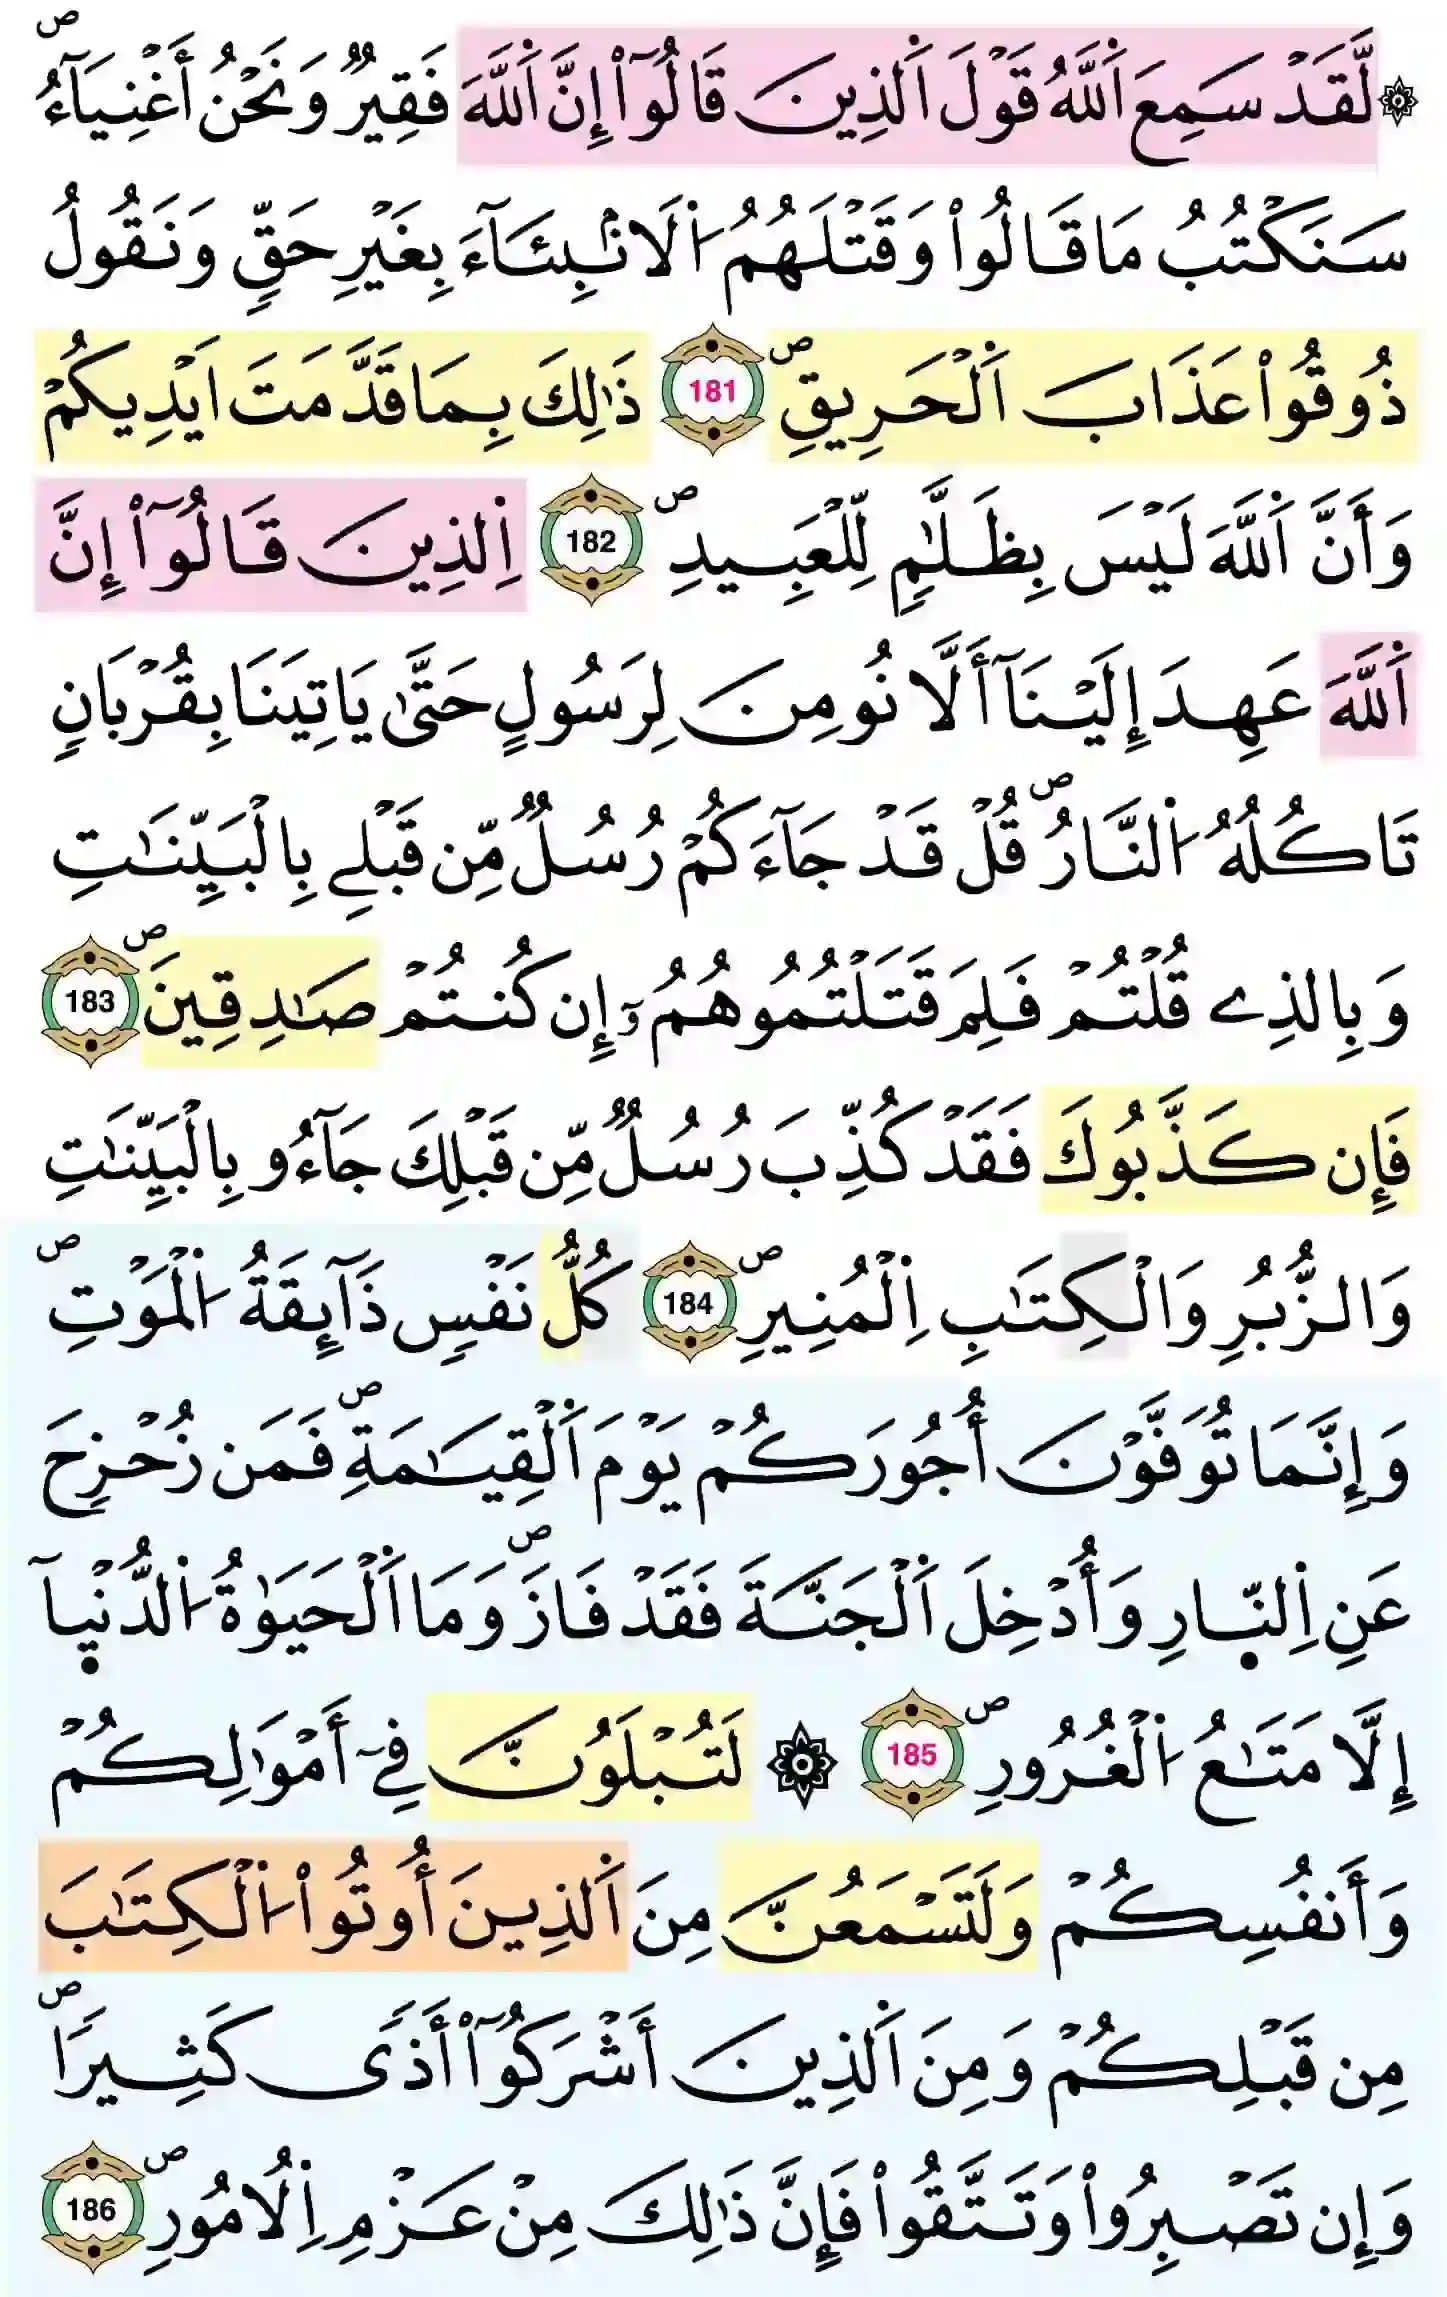 ۞ لَّقَدْ سَمِعَ اَ۬للَّهُ قَوْلَ اَ۬لذِينَ قَالُوٓاْ إِنَّ اَ۬للَّهَ فَقِيرٞ وَنَحْنُ أَغْنِيَآءُۖ
سَنَكْتُبُ مَا قَالُواْ وَقَتْلَهُمُ اُ۬لَانۢبِئَآءَ بِغَيْرِ حَقّٖ وَنَقُولُ
ذُوقُواْ عَذَابَ اَ۬لْحَرِيقِۖ 181 ذَٰلِكَ بِمَا قَدَّمَتَ اَيْدِيكُمْ
وَأَنَّ اَ۬للَّهَ لَيْسَ بِظَلَّٰمٖ لِّلْعَبِيدِۖ 182 اِ۬لذِينَ قَالُوٓاْ إِنَّ
اَ۬للَّهَ عَهِدَ إِلَيْنَآ أَلَّا نُومِنَ لِرَسُولٍ حَتَّىٰ يَاتِيَنَا بِقُرْبَانٖ
تَاكُلُهُ اُ۬لنَّارُۖ قُلْ قَدْ جَآءَكُمْ رُسُلٞ مِّن قَبْلِے بِالْبَيِّنَٰتِ
وَبِالذِے قُلْتُمْ فَلِمَ قَتَلْتُمُوهُمُۥٓ إِن كُنتُمْ صَٰدِقِينَۖ 183
فَإِن كَذَّبُوكَ فَقَدْ كُذِّبَ رُسُلٞ مِّن قَبْلِكَ جَآءُو بِالْبَيِّنَٰتِ
وَالزُّبُرِ وَالْكِتَٰبِ اِ۬لْمُنِيرِۖ 184 كُلُّ نَفْسٖ ذَآئِقَةُ اُ۬لْمَوْتِۖ
وَإِنَّمَا تُوَفَّوْنَ أُجُورَكُمْ يَوْمَ اَ۬لْقِيَٰمَةِۖ فَمَن زُحْزِحَ
عَنِ اِ۬لنّ۪ارِ وَأُدْخِلَ اَ۬لْجَنَّةَ فَقَدْ فَازَۖ وَمَا اَ۬لْحَيَوٰةُ اُ۬لدُّنْي۪آ
إِلَّا مَتَٰعُ اُ۬لْغُرُورِۖ 185 ۞ لَتُبْلَوُنَّ فِےٓ أَمْوَٰلِكُمْ
وَأَنفُسِكُمْ وَلَتَسْمَعُنَّ مِنَ اَ۬لذِينَ أُوتُواْ اُ۬لْكِتَٰبَ
مِن قَبْلِكُمْ وَمِنَ اَ۬لذِينَ أَشْرَكُوٓاْ أَذٗى كَثِيراٗۖ
وَإِن تَصْبِرُواْ وَتَتَّقُواْ فَإِنَّ ذَٰلِكَ مِنْ عَزْمِ اِ۬لُامُورِۖ 186